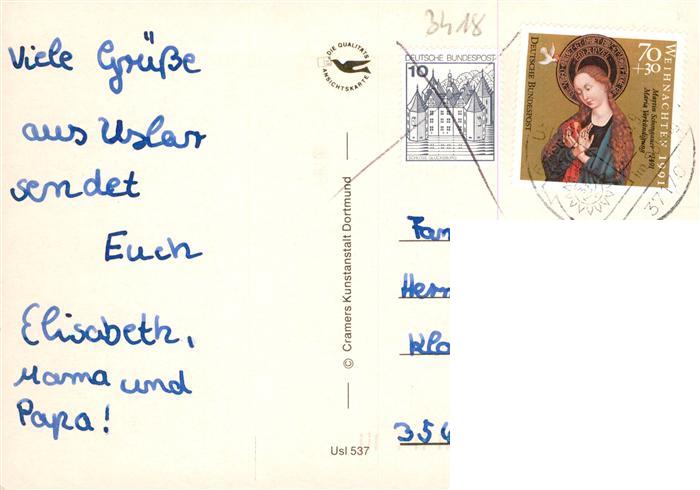 Viele Grüße
aus Uslar
sendet
Euch
Elisabeth,
Mama und
Papa!
DIE QUALITÄTS
ANSICHTSKARTE
© Cramers Kunstanstalt Dortmund
Usl 537
3418
DEUTSCHE BUNDESPOST
10
SCHLOSS GLÜCKSBURG
70
+30
WEIHNACHTEN 1991
Martin Schongauer †1491
Maria Verkündigung
DEUTSCHE BUNDESPOST
Fam
Herr
Kla
354